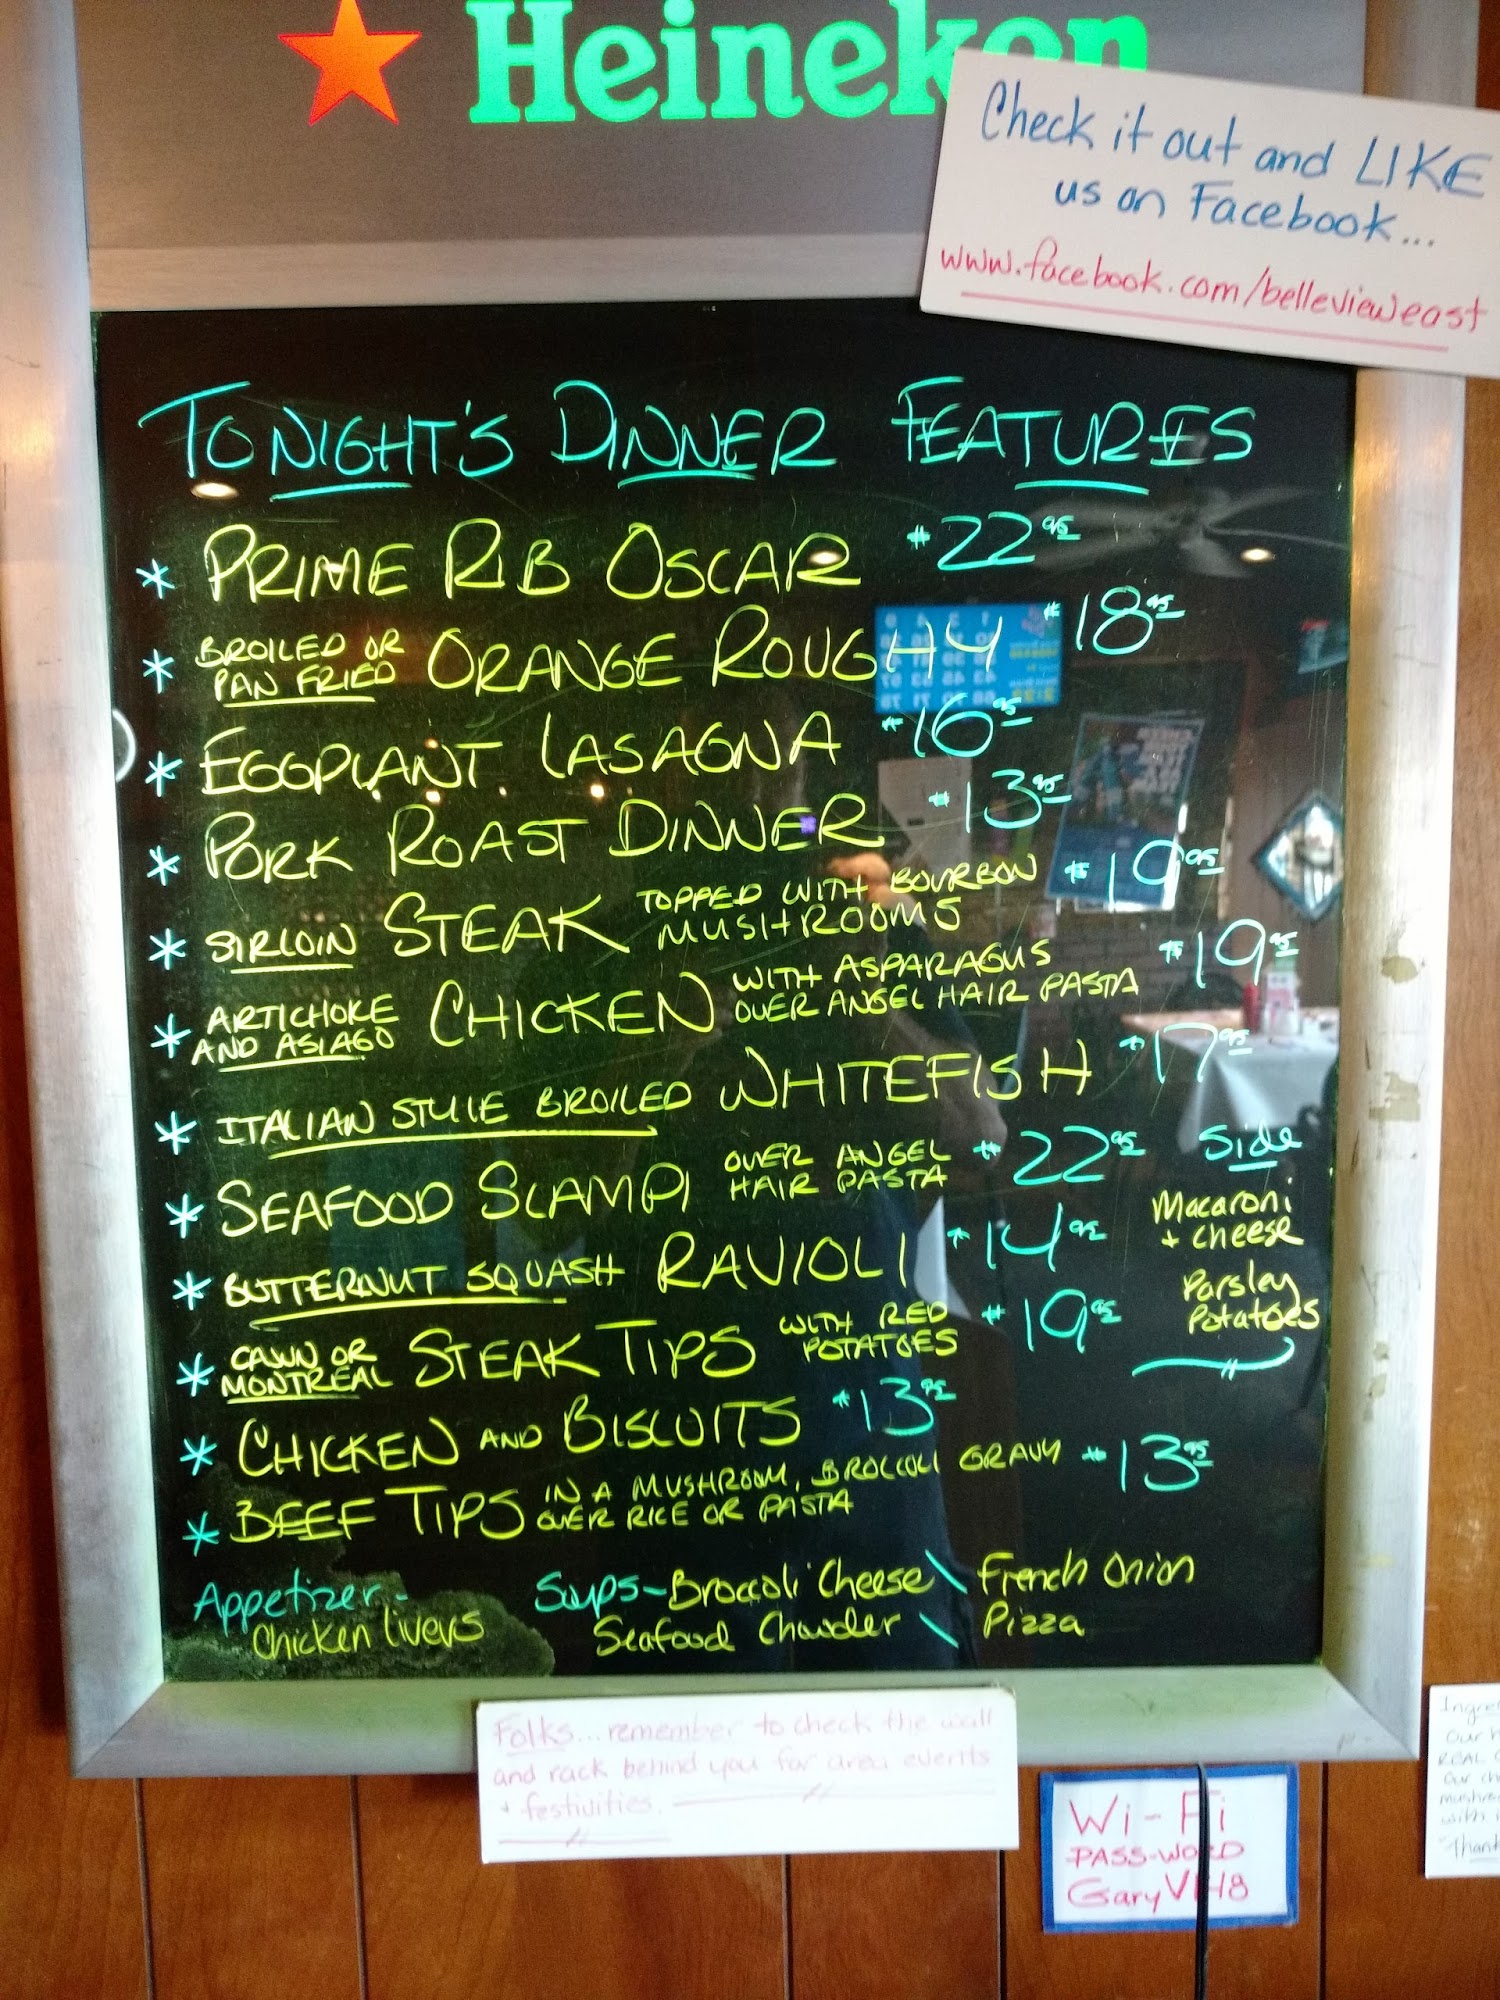 Heineken
Check it out and LIKE
us on Facebook...
www.facebook.com/bellevieweast
TONIGHT'S DINNER FEATURES
* PRIME RIB OSCAR $22.95
* BROILED OR PAN FRIED ORANGE ROUGHY $18.95
* EGGPLANT LASAGNA $16.95
* PORK ROAST DINNER $13.95
* SIRLOIN STEAK TOPPED WITH BOURBON MUSHROOMS $19.95
* ARTICHOKE AND ASIAGO CHICKEN WITH ASPARAGUS OVER ANGEL HAIR PASTA $19.95
* ITALIAN STYLE BROILED WHITEFISH $17.95
* SEAFOOD SCAMPI OVER ANGEL HAIR PASTA $22.95
* BUTTERNUT SQUASH RAVIOLI $14.95
* CAJUN OR MONTREAL STEAK TIPS WITH RED POTATOES $19.95
* CHICKEN AND BISCUITS $13.95
* BEEF TIPS IN A MUSHROOM, BROCCOLI GRAVY OVER RICE OR PASTA $13.95
Side
Macaroni
+ cheese
Parsley
Potatoes
Appetizer-
Chicken livers
Soups-Broccoli Cheese \ French Onion
Seafood Chowder \ Pizza
Folks...remember to check the wall
and rack behind you for area events
+ festivities.
Wi-Fi
PASS-WORD
GaryVH8
Ingre
Our
REAL
Our ch
mushr
with
Thank